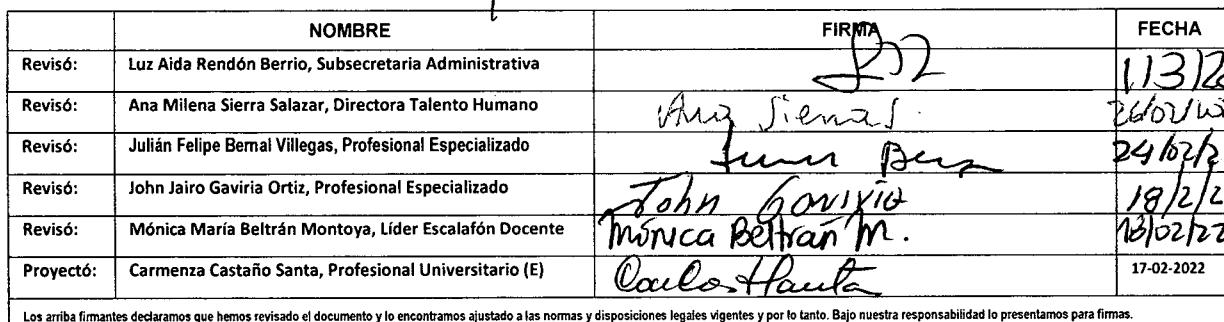 NOMBRE FIRMA FECHA
Revisó: Luz Aida Rendón Berrio, Subsecretaria Administrativa
Revisó: Ana Milena Sierra Salazar, Directora Talento Humano Ana Sierra S.
Revisó: Julián Felipe Bernal Villegas, Profesional Especializado 24/02/2
Revisó: John Jairo Gaviria Ortiz, Profesional Especializado John Gaviria 18/2/2
Revisó: Mónica María Beltrán Montoya, Líder Escalafón Docente Mónica Beltrán M. 18/02/22
Proyectó: Carmenza Castaño Santa, Profesional Universitario (E) 17-02-2022
Los arriba firmantes declaramos que hemos revisado el documento y lo encontramos ajustado a las normas y disposiciones legales vigentes y por lo tanto. Bajo nuestra responsabilidad lo presentamos para firmas.